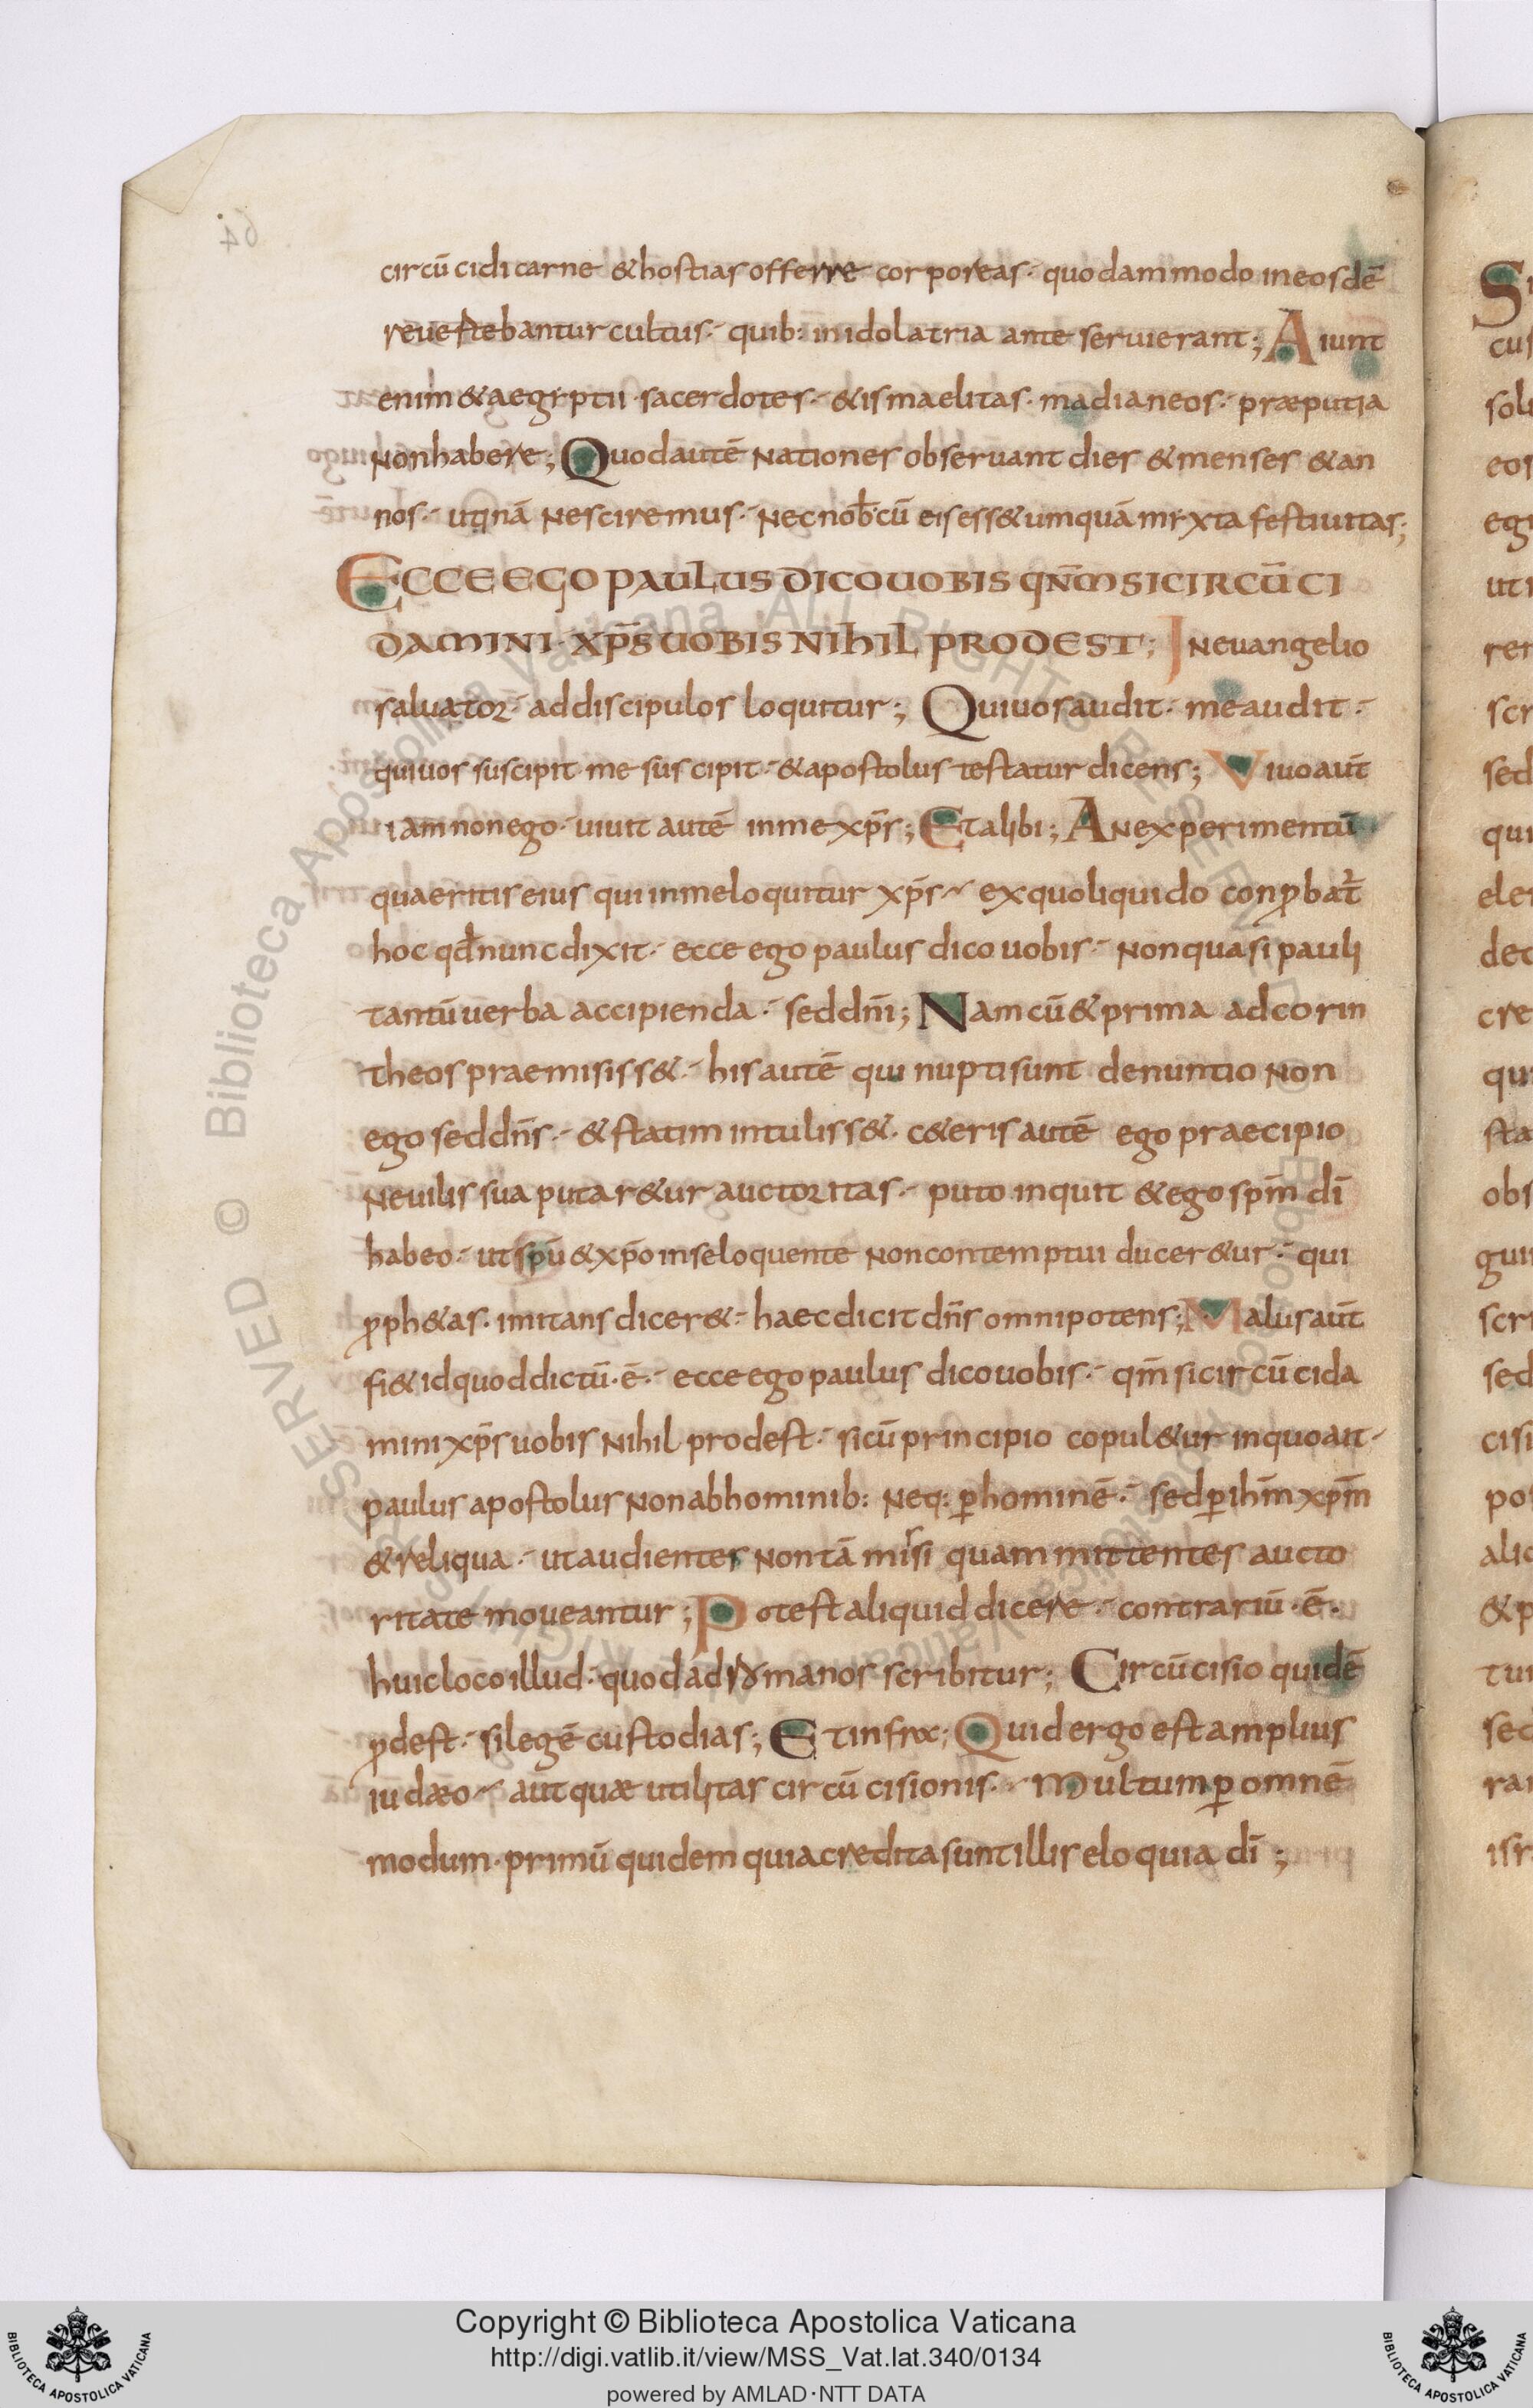 circū cidi carne & hostias offerre corporeas · quodammodo in eosdē
reuestebantur cultus · quib: in idolatria ante seruierant ; Aiunt
enim & aegyptii sacerdotes · & ismaelitas · madianeos · præputia
non habere ; Quod autē nationes obseruant dies & menses & an
nos · utinā nesciremus · nec nob̄ cū eis ess& umquā myxta festiuitas ;
ECCE EGO PAULUS DICO UOBIS QNM̄ SI CIRCŪCI
DAMINI · XP̄S UOBIS NIHIL PRODEST ; In euangelio
saluator · ad discipulos loquitur ; Qui uos audit · me audit ·
qui uos suscipit me suscipit · & apostolus testatur dicens ; Viuo aut̄
iam non ego · uiuit autē in me xp̄s ; Et alibi ; An experimentū
quaeritis eius qui in me loquitur xp̄s · ex quo liquido conꝓbat̄
hoc qd̄ nunc dixit · ecce ego paulus dico uobis · non quasi pauli
tantū uerba accipienda · sed dn̄i ; Nam cū & prima ad corin
theos praemisiss& · his autē qui nupti sunt denuntio non
ego sed dn̄s · & statim intuliss& · c&eris autē ego praecipio
ne uilis sua putar&ur auctoritas · puto inquit & ego sp̄m dī
habeo · ut sp̄u & xp̄o in se loquente non contemptui ducer&ur · qui
ꝓph&as · imitans dicer& · haec dicit dn̄s omnipotens ; Malus aut̄
fi& id quod dictū · ē · ecce ego paulus dico uobis · qm̄ si circū cida
mini xp̄s uobis nihil prodest · si cū principio copul&ur in quo ait ·
paulus apostolus non ab hominib: neq: ꝑ hominē · sed ꝑ ihm̄ xpm̄
& reliqua · ut audientes non tā misi quam mittentes aucto
ritate moueantur ; Potest aliquid dicere · contrariū · ē ·
huic loco illud · quod ad romanos scribitur ; Circūcisio quidē
ꝓdest · si legē custodias ; Et infra ; Quid ergo est amplius
iudæo · aut quæ utilitas circū cisionis · Multum ꝑ omnē
modum · primū quidem quia credita sunt illis eloquia dī ;
Copyright © Biblioteca Apostolica Vaticana
http://digi.vatlib.it/view/MSS_Vat.lat.340/0134
powered by AMLAD·NTT DATA